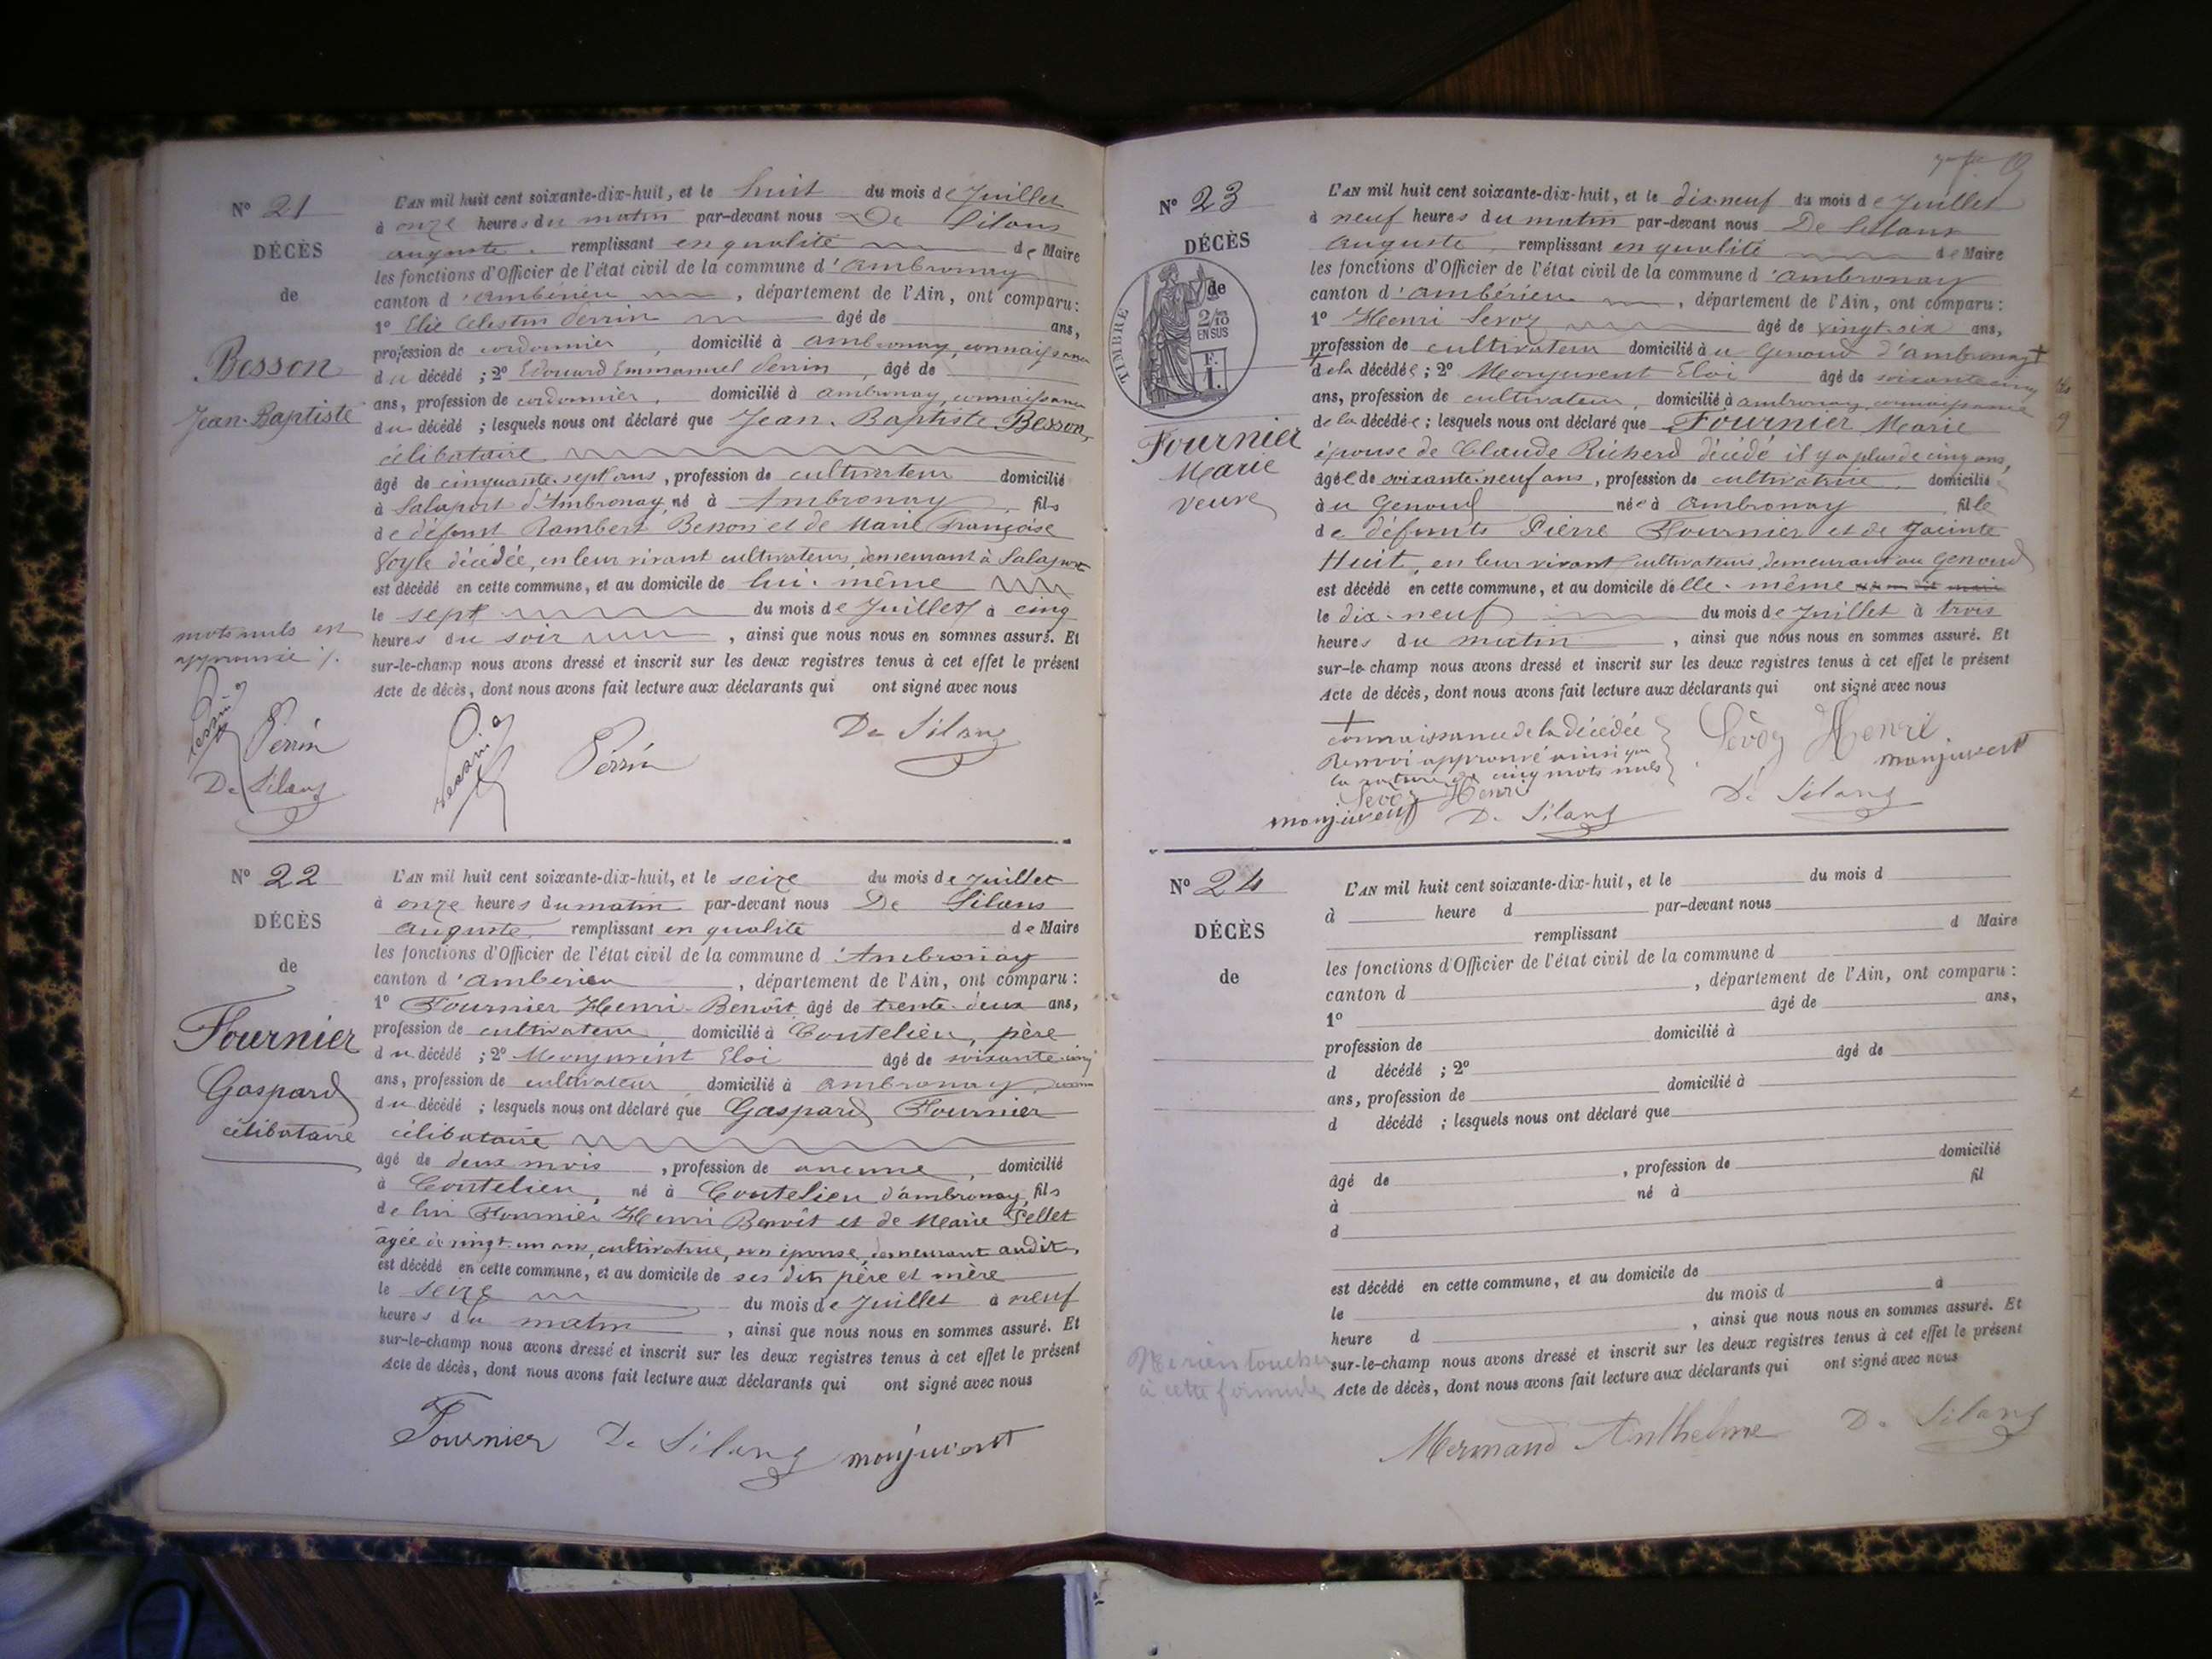 Nº 21
DÉCÈS
de
Besson
Jean-Baptiste
L'AN mil huit cent soixante-dix-huit, et le huit du mois de Juillet
à onze heures du matin par-devant nous De Silans
auguste. remplissant en qualité de Maire
les fonctions d'Officier de l'état civil de la commune d'ambronay
canton d'ambérieu, département de l'Ain, ont comparu:
1º Elie Celestin Perrin âgé de ans,
profession de cordonnier, domicilié à ambronay, connaissance
du décédé ; 2º Edouard Emmanuel Perrin, âgé de
ans, profession de cordonnier, domicilié à ambronay, connaissance
du décédé ; lesquels nous ont déclaré que Jean-Baptiste Besson,
célibataire
âgé de cinquante-sept ans, profession de cultivateur domicilié
à Salaport d'Ambronay, né à Ambronay fils
de défunt Rambert Besson et de Marie Françoise
décédée, en leur vivant cultivateurs, demeurant à Salaport
est décédé en cette commune, et au domicile de lui-même
le sept du mois de Juillet à cinq
heures du soir, ainsi que nous nous en sommes assuré. Et
sur-le-champ nous avons dressé et inscrit sur les deux registres tenus à cet effet le présent
Acte de décès, dont nous avons fait lecture aux déclarants qui ont signé avec nous
mots nuls
Perrin
De Silans
Perrin
De Silans
Nº 22
DÉCÈS
de
Fournier
Gaspard
célibataire
L'AN mil huit cent soixante-dix-huit, et le seize du mois de Juillet
à onze heures du matin par-devant nous De Silans
auguste. remplissant en qualité de Maire
les fonctions d'Officier de l'état civil de la commune d'Ambronay
canton d'ambérieu, département de l'Ain, ont comparu:
1º Fournier Henri-Benoît âgé de trente-deux ans,
profession de cultivateur, domicilié à Coutelieu, père
du décédé ; 2º Monjuvent Eloi âgé de soixante-cinq
ans, profession de cultivateur domicilié à ambronay
du décédé ; lesquels nous ont déclaré que Gaspard Fournier
célibataire
âgé de deux mois, profession de aucune, domicilié
à Coutelieu, né à Coutelieu d'ambronay, fils
de lui Fournier Henri Benoît et de Marie Pellet
agée de vingt-un ans, cultivatrice, son épouse, demeurant audit,
est décédé en cette commune, et au domicile de ses dits père et mère
le seize du mois de Juillet à neuf
heures du matin, ainsi que nous nous en sommes assuré. Et
sur-le-champ nous avons dressé et inscrit sur les deux registres tenus à cet effet le présent
Acte de décès, dont nous avons fait lecture aux déclarants qui ont signé avec nous
Fournier De Silans monjuvent
Nº 23
DÉCÈS
de
TIMBRE
2/10
EN SUS
F.
1.
Fournier
Marie
veuve
L'AN mil huit cent soixante-dix-huit, et le dix-neuf du mois de Juillet
à neuf heures du matin par-devant nous De Silans
auguste remplissant en qualité de Maire
les fonctions d'Officier de l'état civil de la commune d'ambronay
canton d'ambérieu, département de l'Ain, ont comparu:
1º Henri Sevoz âgé de vingt-six ans,
profession de cultivateur domicilié à au Genoud d'ambronay +
de la décédée ; 2º Monjuvent Eloi âgé de soixante cinq
ans, profession de cultivateur, domicilié à ambronay, connaissance
de la décédée ; lesquels nous ont déclaré que Fournier Marie
épouse de Claude Richerd décédé il y a plus de cinq ans,
âgée de soixante-neuf ans, profession de cultivatrice, domicilié
à au Genoud née à ambronay fille
de défunts Pierre Fournier et de Jacinte
Huit, en leur vivant cultivateurs, demeurant au Genoud
est décédé en cette commune, et au domicile d'elle-même
le dix-neuf du mois de Juillet à trois
heures du matin, ainsi que nous nous en sommes assuré. Et
sur-le-champ nous avons dressé et inscrit sur les deux registres tenus à cet effet le présent
Acte de décès, dont nous avons fait lecture aux déclarants qui ont signé avec nous
+
connaissance de la décédée
Renvoi approuvé ainsi que
la rature de cinq mots nuls
Sevoz Henri
monjuvent De Silans
Sevoz Henri
monjuvent
De Silans
Nº 24
DÉCÈS
de
L'AN mil huit cent soixante-dix-huit, et le du mois d
à heure d par-devant nous
remplissant d Maire
les fonctions d'Officier de l'état civil de la commune d
canton d, département de l'Ain, ont comparu:
1º âgé de ans,
profession de domicilié à
d décédé ; 2º âgé de
ans, profession de domicilié à
d décédé ; lesquels nous ont déclaré que
âgé de, profession de domicilié
à né à fil
d
est décédé en cette commune, et au domicile de
le du mois d à
heure d, ainsi que nous nous en sommes assuré. Et
sur-le-champ nous avons dressé et inscrit sur les deux registres tenus à cet effet le présent
Acte de décès, dont nous avons fait lecture aux déclarants qui ont signé avec nous
Ne rien toucher
à cette formule
Mermand Anthelme De Silans